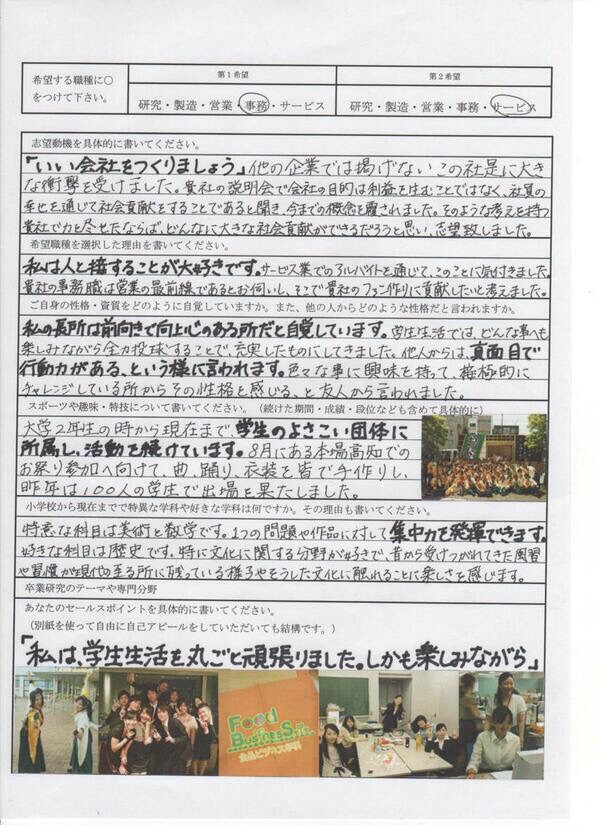 希望する職種に○
をつけて下さい。
第１希望
第２希望
研究・製造・営業・事務・サービス
研究・製造・営業・事務・サービス
志望動機を具体的に書いてください。
「いい会社をつくりましょう」他の企業では掲げないこの社是に大き
な衝撃を受けました。貴社の説明会で会社の目的は利益を生むことではなく、社員の
幸せを通じて社会貢献をすることであると聞き、今までの概念を覆されました。そのような考えを持つ
貴社で力を尽せたならば、どんなに大きな社会貢献ができるだろうと思い、志望致しました。
希望職種を選択した理由を書いてください。
私は人と接することが大好きです。サービス業でのアルバイトを通じて、このことに気付きました。
貴社の事務職は営業の最前線であるとお伺いし、そこで貴社のファン作りに貢献したいと考えました。
ご自身の性格・資質をどのように自覚していますか。また、他の人からどのような性格だと言われますか。
私の長所は前向きで向上心のある所だと自覚しています。学生生活では、どんな事へも
楽しみながら全力投球することで、充実したものにしてきました。他人からは、真面目で
行動力がある、という様に言われます。色々な事に興味を持って、積極的に
チャレンジしている所からその性格を感じる、と友人から言われました。
スポーツや趣味・特技について書いてください。（続けた期間・成績・段位なども含めて具体的に）
大学２年生の時から現在まで学生のよさこい団体に
所属し、活動を続けています。８月にある本場高知での
お祭り参加へ向けて、曲、踊り、衣装を皆で手作りし、
昨年は１００人の学生で出場を果たしました。
小学校から現在までで特異な学科や好きな学科は何ですか。その理由も書いてください。
特意な科目は美術と数学です。１つの問題や作品に対して集中力を発揮できます。
好きな科目は歴史です。特に文化に関する分野が好きで、昔から受けつがれてきた風習
や習慣が現代の至る所に残っている様子やそうした文化に触れることに楽しさを感じます。
卒業研究のテーマや専門分野
あなたのセールスポイントを具体的に書いてください。
（別紙を使って自由に自己アピールをしていただいても結構です。）
「私は、学生生活を丸ごと頑張りました。しかも楽しみながら」
Food
Business
食品ビジネス学科